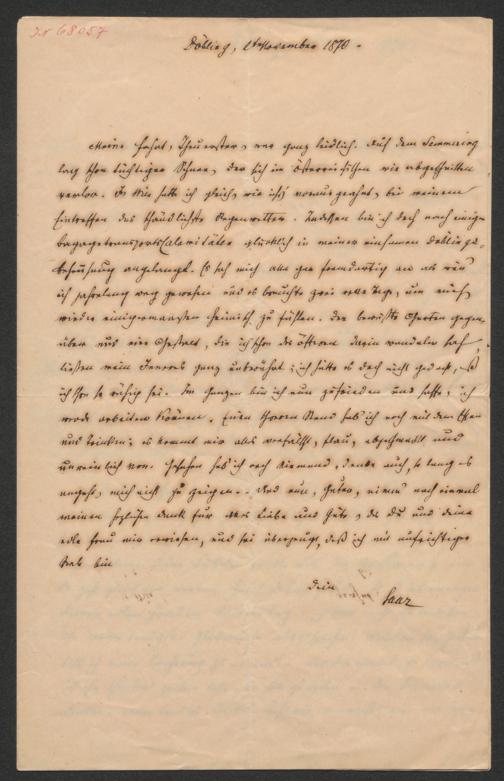 I.N 68057
Döbling, 1 November 1870.
Meine Fahrt, Theuerster, war ganz leidlich. Auf dem Semmering
lag schon tüchtiger Schnee, der sich im Österreichischen wie abgeschnitten
verlor. In Wien hatte ich gleich, wie ich's vorausgeahnt, bei meinem
Eintreffen das scheußlichste Regenwetter. Indessen bin ich doch nach einigen
Bagagetransportscalamitäten glücklich in meiner einsamen Döblinger
Behausung angelangt. Es sah mich alles gar fremdartig an als wäre
ich jahrelang weg gewesen und es brauchte zwei volle Tage, um mich
wieder einigermaassen heimisch zu fühlen. Der bewußte Garten gegen-
über und eine Gestalt, die ich schon des öfteren darin wandeln sah,
ließen mein Inneres ganz unberührt; ich hätte es doch nicht gedacht, daß
ich schon so ruhig sei. Im Ganzen bin ich nun zufrieden und hoffe, ich
werde arbeiten können. Einen schweren Stand hab' ich noch mit dem Essen
und Trinken; es kommt mir alles verfälscht, flau, abgeschmackt und
unreinlich vor. Gesehen hab' ich noch Niemand, denke auch, so lang es
angeht, mich nicht zu zeigen. Und nun, Guter, nimm noch einmal
meinen herzlichen Dank für alles Liebe und Gute, das Du und deine
edle Frau mir erwiesen, und sei überzeugt, daß ich mit aufrichtiger
bin
Dein
Saar